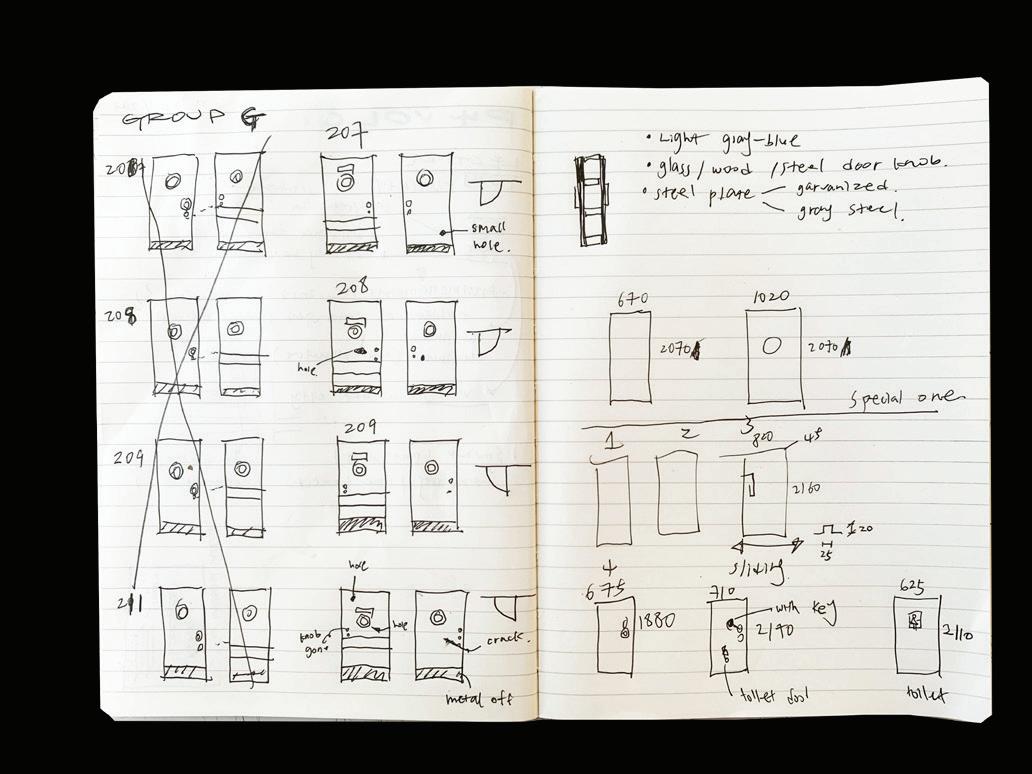 GROUP G
207
207
small
hole.
208
208
hole.
209
209
211
hole
hole
knob
gone
crack.
metal off
• Light gray-blue
• glass/wood/steel door knob.
• steel plate
garvanized.
gray steel.
670
1020
2070
2070
Special one
1
2
3
800
45
2160
20
25
sliding
4
675
1880
710
with key
2140
625
2110
toilet
toilet